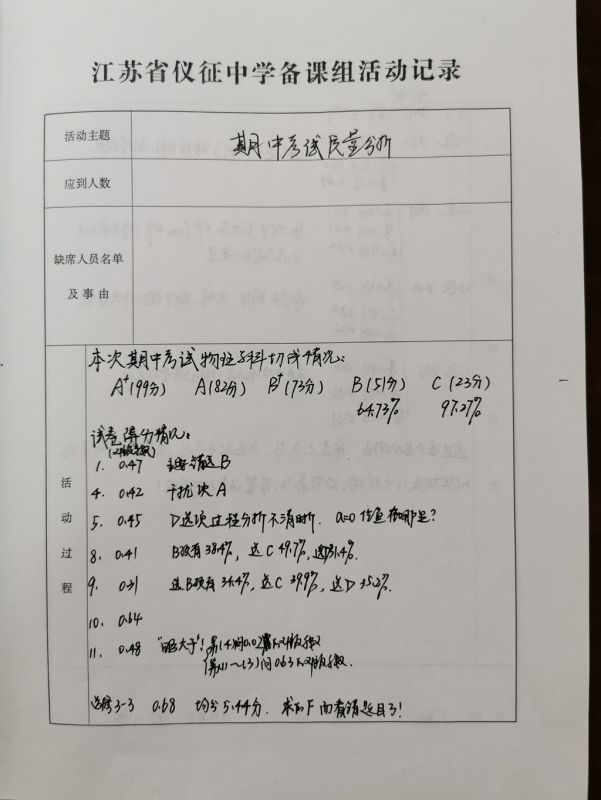 江苏省仪征中学备课组活动记录
活动主题
期中考试质量分析
应到人数
缺席人员名单
及事由
活动过程
本次期中考试物理学科切线情况:
A+(99分) A(82分) B+(73分) B(51分) C(23分)
64.73% 97.27%
试卷得分情况:
1. 0.47 错选B
4. 0.42 干扰项A
5. 0.45 D选项过程分析不清晰. a=0 位置在哪里?
8. 0.41 B项有38.4%, 选C 49.7%, 选D 31.4%
9. 0.31 选B项有34.4%, 选C 39.9%, 选D 35.2%.
10. 0.64
11. 0.48 第(4)问0.02
第(1)~(3)问0.63
选修3-3 0.68 均分5.44分. 求的F而看错题目了!